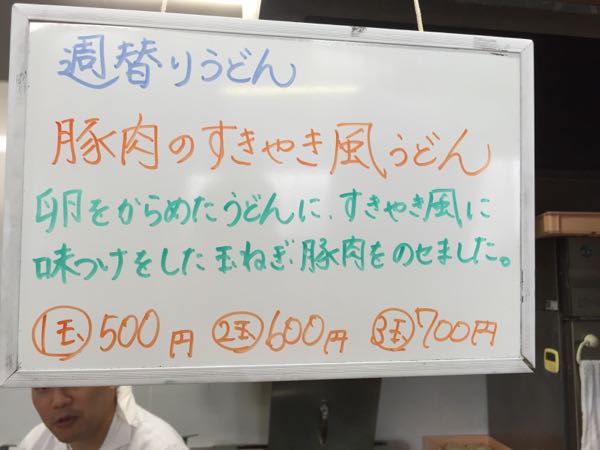 週替りうどん
豚肉のすきやき風うどん
卵をからめたうどんに、すきやき風に
味つけをした玉ねぎ、豚肉をのせました。
1玉500円 2玉600円 3玉700円